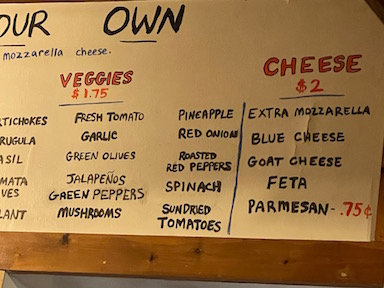 OUR OWN
mozzarella cheese.
VEGGIES
$1.75
RTICHOKES
RUGULA
ASIL
MATA
VES
LANT
FRESH TOMATO
GARLIC
GREEN OLIVES
JALAPEÑOS
GREEN PEPPERS
MUSHROOMS
PINEAPPLE
RED ONION
ROASTED
RED PEPPERS
SPINACH
SUNDRIED
TOMATOES
CHEESE
$2
EXTRA MOZZARELLA
BLUE CHEESE
GOAT CHEESE
FETA
PARMESAN - .75¢